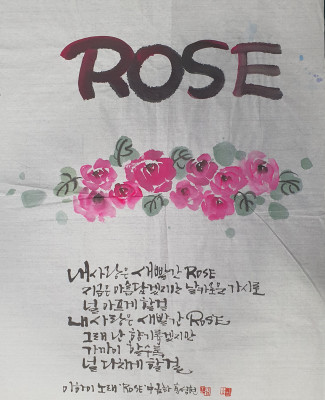 ROSE
내 사랑은 새빨간 ROSE
지금은 아름답겠지만 날카로운 가시로
널 아프게 할걸
내 사랑은 새빨간 ROSE
그래 난 향기롭겠지만
가까이 할수록
널 다치게 할걸
이하이 노래 'ROSE'